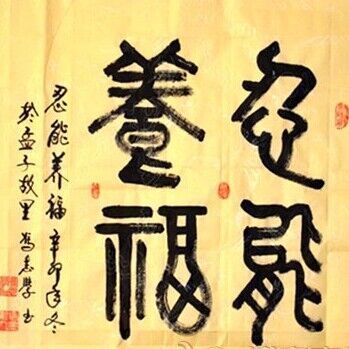 忍能
養福
忍能养福辛卯年冬
於孟子故里冯志学书